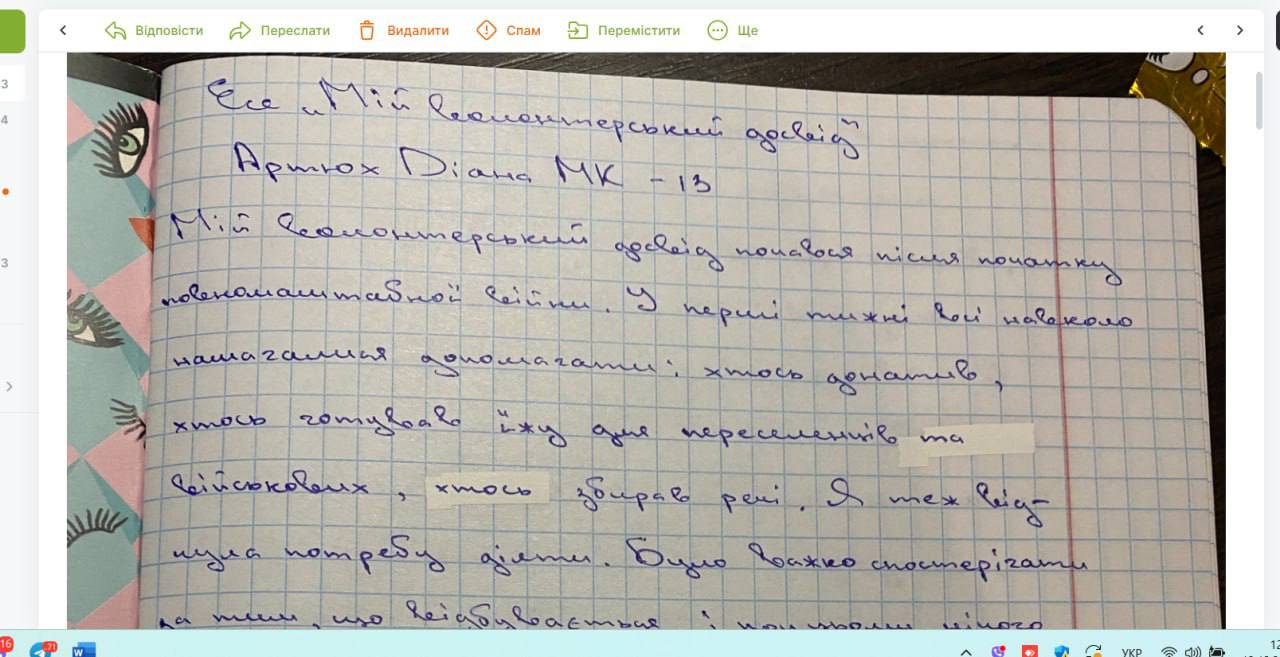 Відповісти Переслати Видалити Спам Перемістити Ще
3
4
3
Есе „Мій волонтерський досвід"
Артюх Діана МК - 13
Мій волонтерський досвід почався після початку
повномаштабної війни. У перші тижні всі навколо
намагалися допомагати: хтось донатив,
хтось готував їжу для переселенців та
військових, хтось збирав речі. Я теж від-
чула потребу діяти. Було важко спостерігати
за тим, що відбувається і
16
71
W
УКР